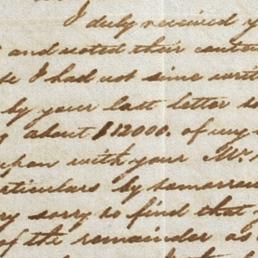 I duly received y
and noted their conten
se I had not since writ
by your last letter so
about $12000. of my
upon with your Mr.
articulars by tomorrow
ry sorry to find that
of the remainder as